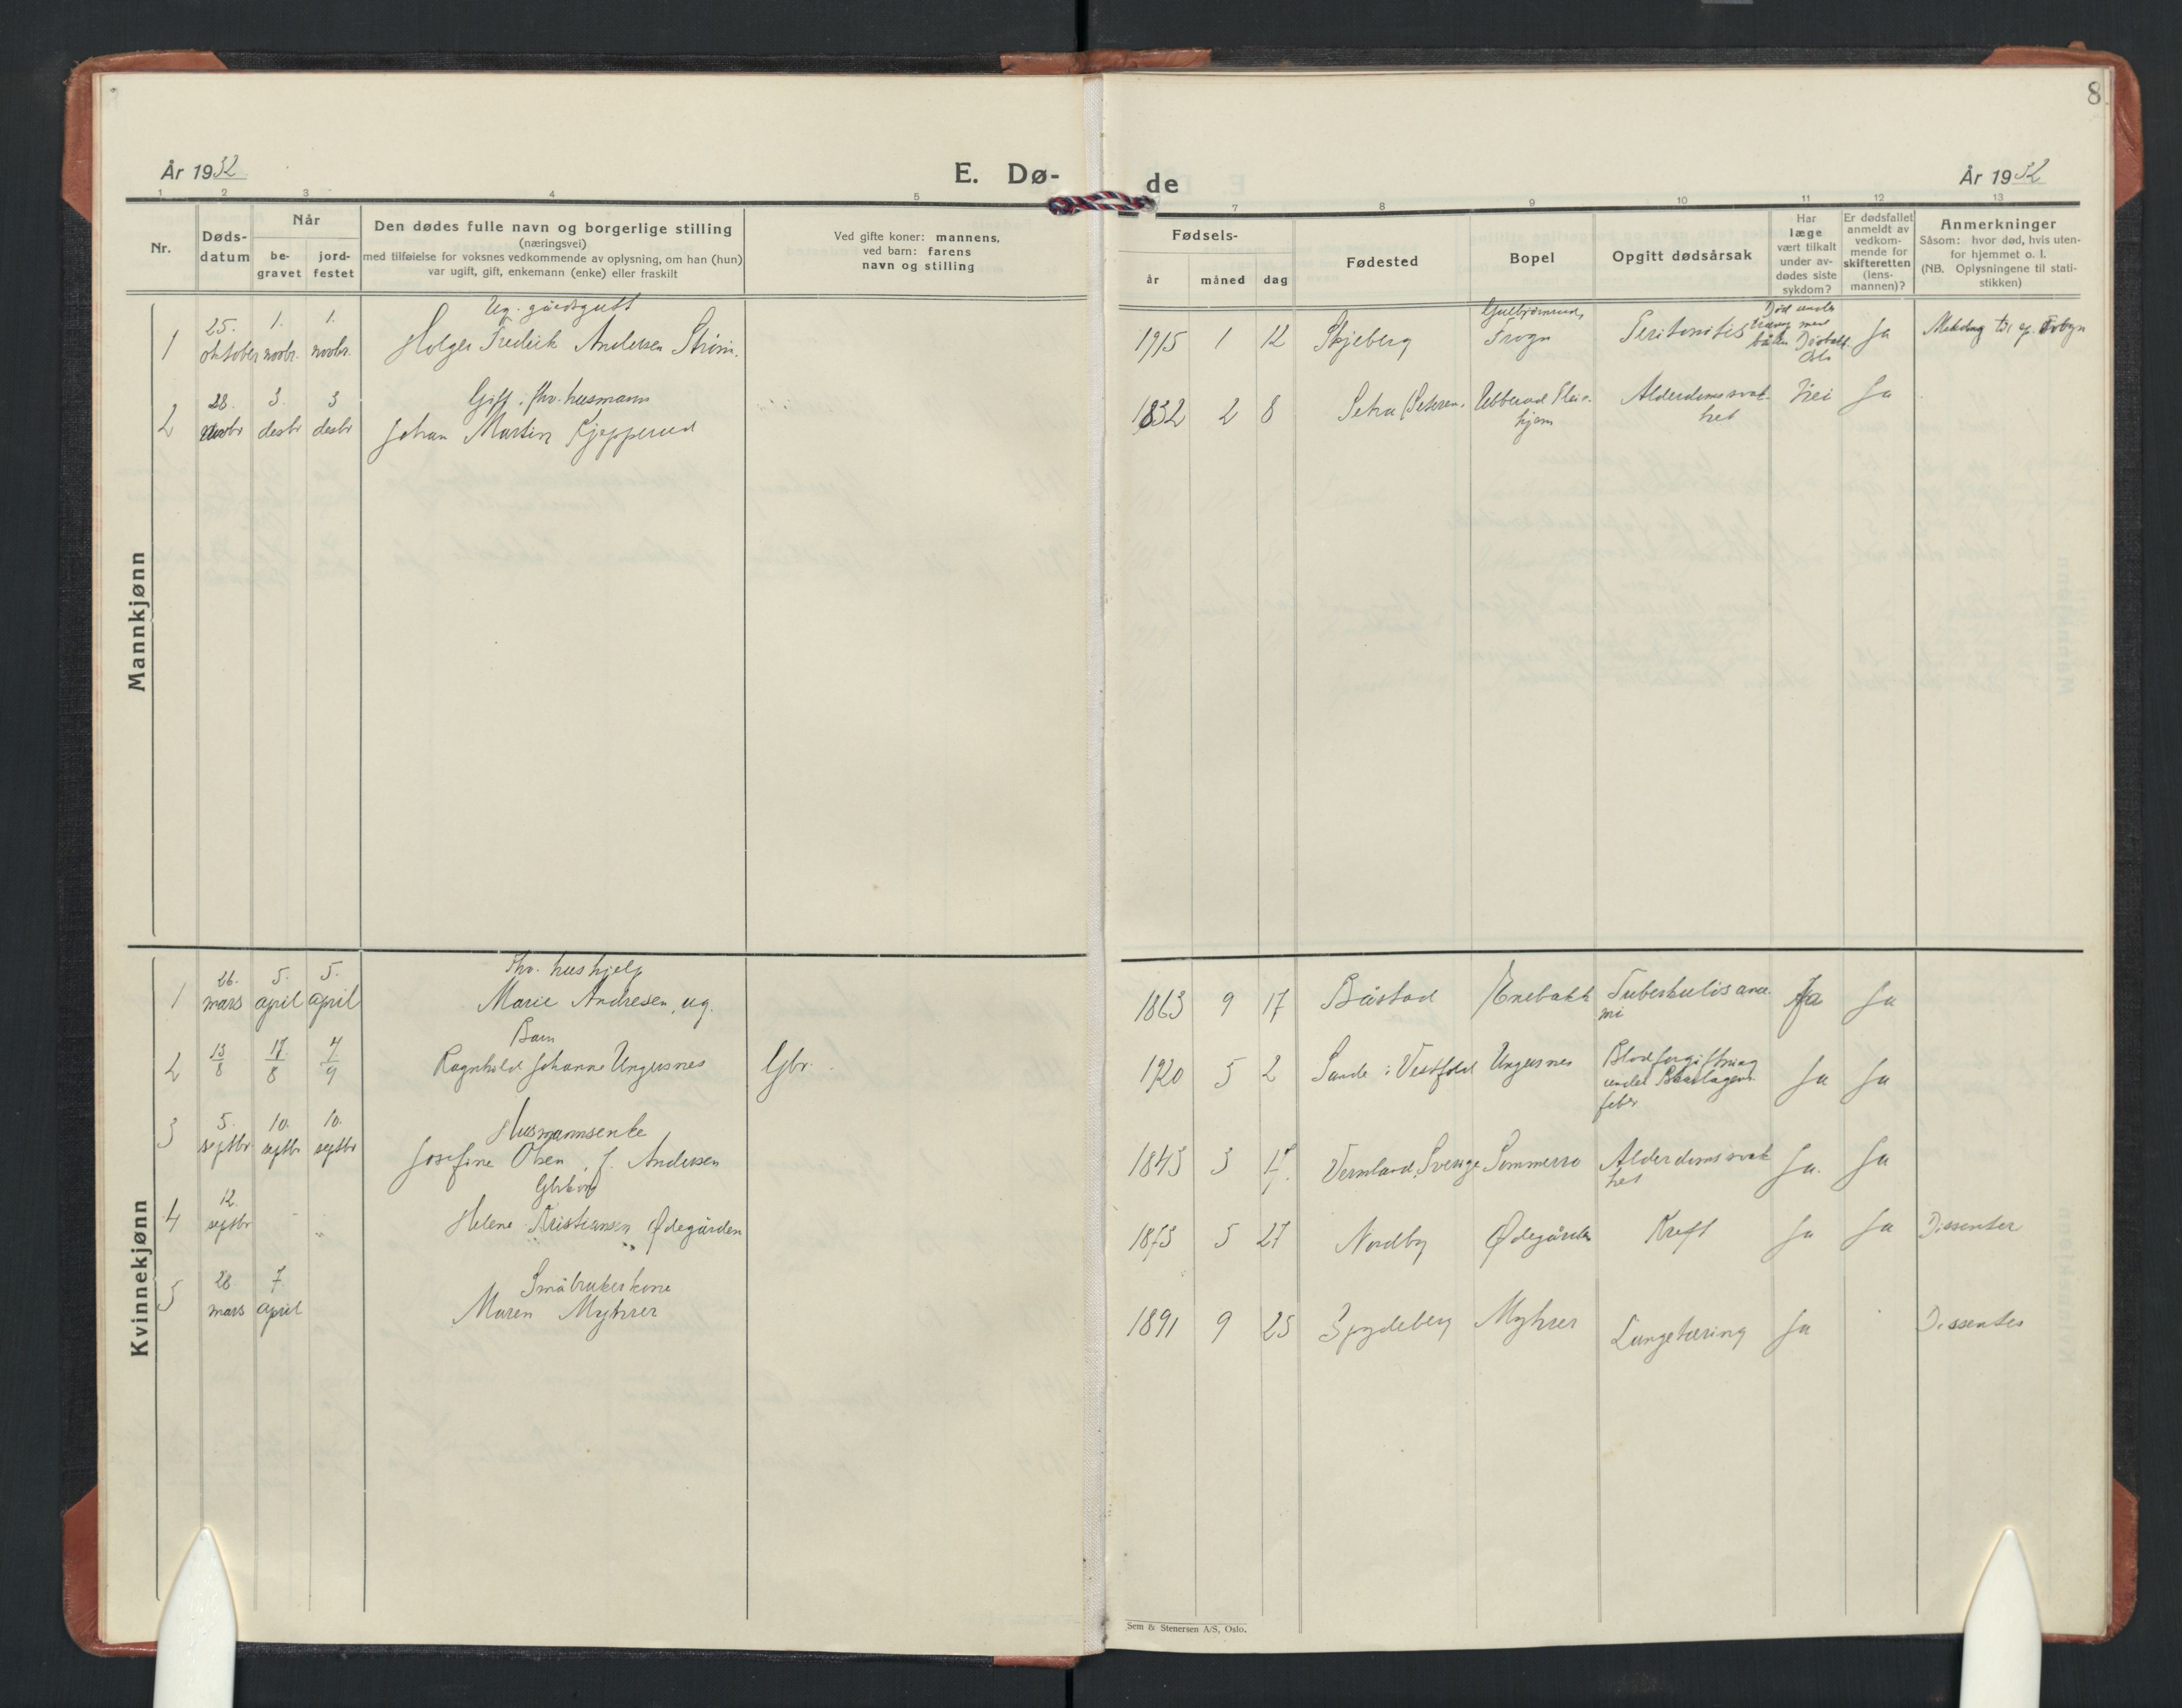 8
År 1932
E. Dø-
de
År 1932
1 2 3 4 5
7 8 9 10 11 12 13
Nr.
Døds-
datum
Når
be-
gravet
jord-
festet
Den dødes fulle navn og borgerlige stilling
(næringsvei)
med tilføielse for voksnes vedkommende av oplysning, om han (hun)
var ugift, gift, enkemann (enke) eller fraskilt
Ved gifte koner: mannens,
ved barn: farens
navn og stilling
Fødsels-
år måned dag
Fødested
Bopel
Opgitt dødsårsak
Har
læge
vært tilkalt
under av-
dødes siste
sykdom?
Er dødsfallet
anmeldt av
vedkom-
mende for
skifteretten
(lens-
mannen)?
Anmerkninger
Såsom: hvor død, hvis uten-
for hjemmet o. l.
(NB. Oplysningene til stati-
stikken)
Mannkjønn
1
25.
oktober
1.
novbr.
1.
novbr.
Ug. gårdsgutt
Holger Fredrik Andersen Strøm.
1915 1 12
Skjeberg
Frogn
Peritonitis
Død under
Oslo
Ja
2
28.
novbr
3.
desbr
3
desbr
Gift. fhv. husmann
Johan Martin Kjepperud
1832 2 8
Ubberud Pleie-
hjem
Alderdomssvak-
het
Nei
Ja
Kvinnekjønn
1
26.
mars
5.
april
5.
april
Fhv. hushjelp
Marie Andresen, ug.
1863 9 17
Båstad
Enebakk
Ja
Ja
2
13/8
17/8
4/9
Barn
Ragnhild Johanne Ungersnes
Gbr.
1920 5 2
Sande i Vestfold
Ungersnes
Blodforgiftning
under
feber
Ja
Ja
3
5.
septbr.
10.
septbr
10.
septbr
Husmannsenke
Josefine Olsen, f. Andersen
1843 3 17.
Vermland, Sverige
Sommerro
Alderdomssvak
het
Ja.
Ja
4
12.
septbr
Helene Kristiansen Ødegården
1873 5 27
Nordby
Ødegården
Kreft
Ja
Ja
Dissenter
5
28.
mars
7.
april
Småbrukerkone
Maren Myhrer
1891 9 25
Spydeberg
Myhrer
Lungetæring
Ja
Dissenter
Sem & Stenersen A/S, Oslo.